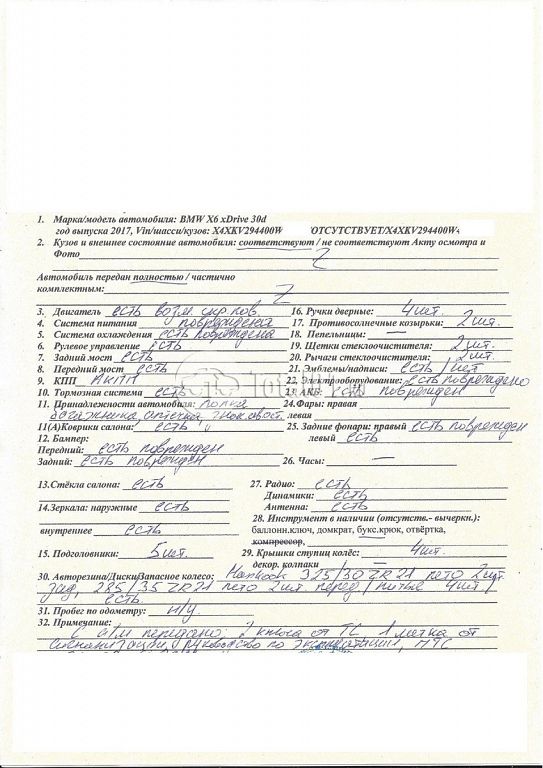 1. Марка/модель автомобиля: BMW X6 xDrive 30d
год выпуска 2017, Vin/шасси/кузов: X4XKV294400W /ОТСУТСТВУЕТ/X4XKV294400W
2. Кузов и внешнее состояние автомобиля: соответствуют / не соответствуют Акту осмотра и
Фото
Автомобиль передан полностью / частично
комплектным:
3. Двигатель есть 16. Ручки дверные: 4 шт.
4. Система питания повреждена 17. Противосолнечные козырьки: 2 шт.
5. Система охлаждения есть повреждена 18. Пепельницы: —
6. Рулевое управление есть 19. Щетки стеклоочистителя: 2 шт.
7. Задний мост есть 20. Рычаги стеклоочистителя: 2 шт.
8. Передний мост есть 21. Эмблемы/надписи: есть / нет
9. КПП АКПП 22. Электрооборудование: есть повреждено
10. Тормозная система есть 23. АКБ: есть поврежден
11. Принадлежности автомобиля: полка 24.Фары: правая
багажника аптечка левая
11(А)Коврики салона: есть 25. Задние фонари: правый есть поврежден
12. Бампер: левый есть
Передний: есть поврежден
Задний: есть поврежден 26. Часы: —
13.Стёкла салона: есть 27. Радио: есть
Динамики: есть
14.Зеркала: наружные есть Антенна: есть
28. Инструмент в наличии (отсутств.- вычеркн.):
внутреннее есть баллонн.ключ, домкрат, букс.крюк, отвёртка,
компрессор,
15. Подголовники: 5 шт. 29. Крышки ступиц колёс: 4 шт.
декор. колпаки —
30. Авторезина/Диски/Запасное колесо: Hankook 325/30 ZR21 лето 2 шт.
зад, 285/35 ZR21 лето 2 шт перед / литые 4 шт /
есть
31. Пробег по одометру: н/у.
32. Примечание:
С а/м передано, 2 ключа от ТС 1 метка от
сигнализации, руководство по эксплуатации, ПТС